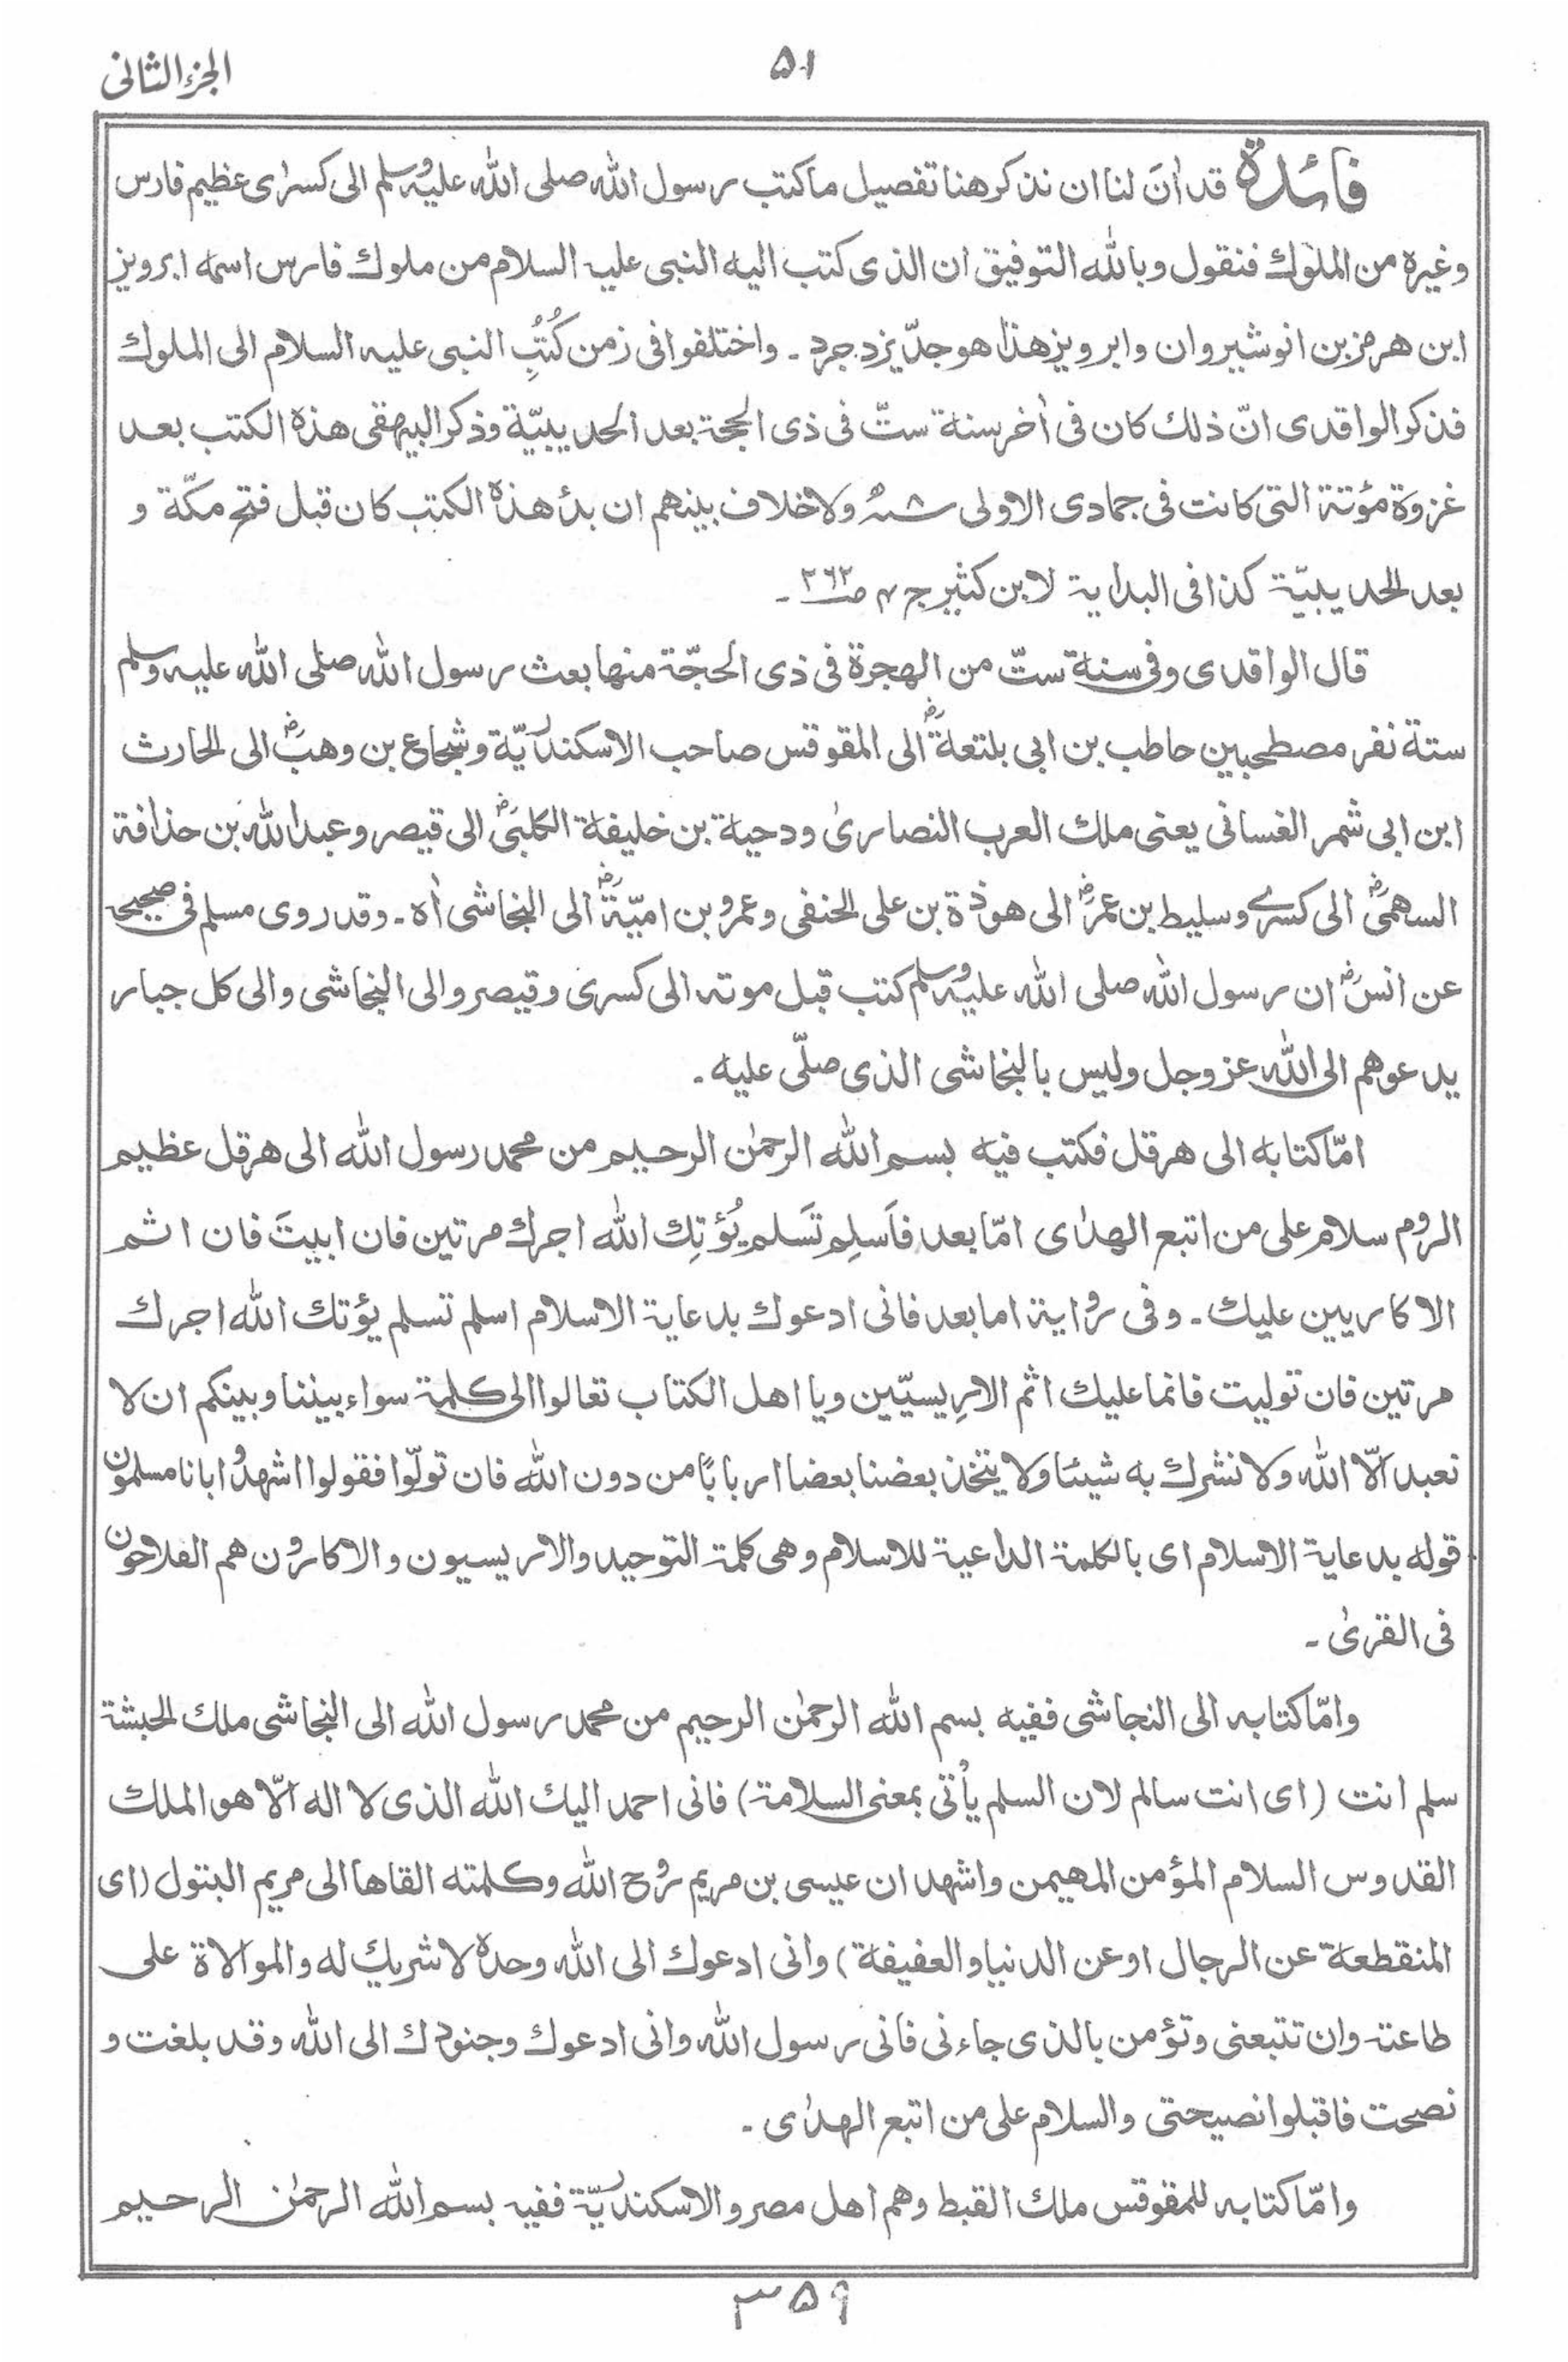 الجزء الثانی
۵۱
فائدة قد اٰنَ لنا ان نذكر هنا تفصیل ما كتب رسول الله صلى الله علیه وسلم الى كسرٰى عظیم فارس
وغیره من الملوك فنقول وبالله التوفیق ان الذی كتب الیه النبی علیه السلام من ملوك فارس اسمه ابرویز
ابن هرمز بن انوشیروان وابرویز هذا هو جدّ یزدجرد ۔ واختلفوا فی زمن كُتُبِ النبی علیه السلام الى الملوك
فذكر الواقدی انّ ذلك كان فی اٰخر سنة ستّ فی ذی الحجة بعد الحدیبیّة وذكر البیهقی هذه الكتب بعد
غزوة مؤتة التی كانت فی جمادی الاولى ولا خلاف بینهم ان بدأ هذه الكتب كان قبل فتح مكّة و
بعد الحدیبیّة كذا فی البدایة لابن كثیر ج ۴ ص ۲۶۲ ۔
قال الواقدی وفی سنة ستّ من الهجرة فی ذی الحجّة منها بعث رسول الله صلى الله علیه وسلم
ستة نفر مصطحبین حاطب بن ابی بلتعةؓ الى المقوقس صاحب الاسكندریّة وشجاع بن وهبؓ الى الحارث
ابن ابی شمر الغسانی یعنی ملك العرب النصارىٰ ودحیة بن خلیفة الكلبیؓ الى قیصر وعبد الله بن حذافة
السهمیؓ الى كسرے وسلیط بن عمرؓ الى هوذة بن علی الحنفی وعمرو بن امیّةؓ الى النجاشی اٰه ۔ وقد روی مسلم فی صحیحہ
عن انسؓ ان رسول الله صلى الله علیه وسلم كتب قبل موته الى كسرى وقیصر والى النجاشی والى كل جبار
یدعوهم الى الله عزوجل ولیس بالنجاشی الذی صلّى علیه ۔
امّا كتابه الى هرقل فكتب فیه بسم الله الرحمٰن الرحیم من محمد رسول الله الى هرقل عظیم
الروم سلام على من اتبع الهدٰى امّا بعد فاَسلِم تَسلم یُؤتِك الله اجرك مرتین فان ابیتَ فان اثم
الاكاریین علیك ۔ وفی روایة اما بعد فانی ادعوك بدعایة الاسلام اسلم تسلم یؤتك الله اجرك
مرتین فان تولیت فانما علیك اثم الاریسیّین ویا اهل الكتاب تعالوا الى كلمة سواء بیننا وبینكم ان لا
نعبد الّا الله ولا نشرك به شیئا ولا یتخذ بعضنا بعضا اربابًا من دون الله فان تولّوا فقولوا اشهدوا بانا مسلمون
قوله بدعایة الاسلام ای بالكلمة الداعیة للاسلام وهی كلمة التوحید والاریسیون والاكارون هم الفلاحون
فی القرىٰ ۔
وامّا كتابه الى النجاشی ففیه بسم الله الرحمٰن الرحیم من محمد رسول الله الى النجاشی ملك الحبشة
سلم انت (ای انت سالم لان السلم یأتی بمعنى السلامة) فانی احمد الیك الله الذی لا اله الّا هو الملك
القدوس السلام المؤمن المهیمن واشهد ان عیسى بن مریم روح الله وكلمته القاها الى مریم البتول (ای
المنقطعة عن الرجال او عن الدنیا والعفیفة) وانی ادعوك الى الله وحده لا شریك له والموالاة على
طاعته وان تتبعنی وتؤمن بالذی جاءنی فانی رسول الله وانی ادعوك وجنودك الى الله وقد بلغت و
نصحت فاقبلوا نصیحتی والسلام على من اتبع الهدٰى ۔
وامّا كتابه للمقوقس ملك القبط وهم اهل مصر والاسكندریّة ففیه بسم الله الرحمٰن الرحیم
۳۵۹